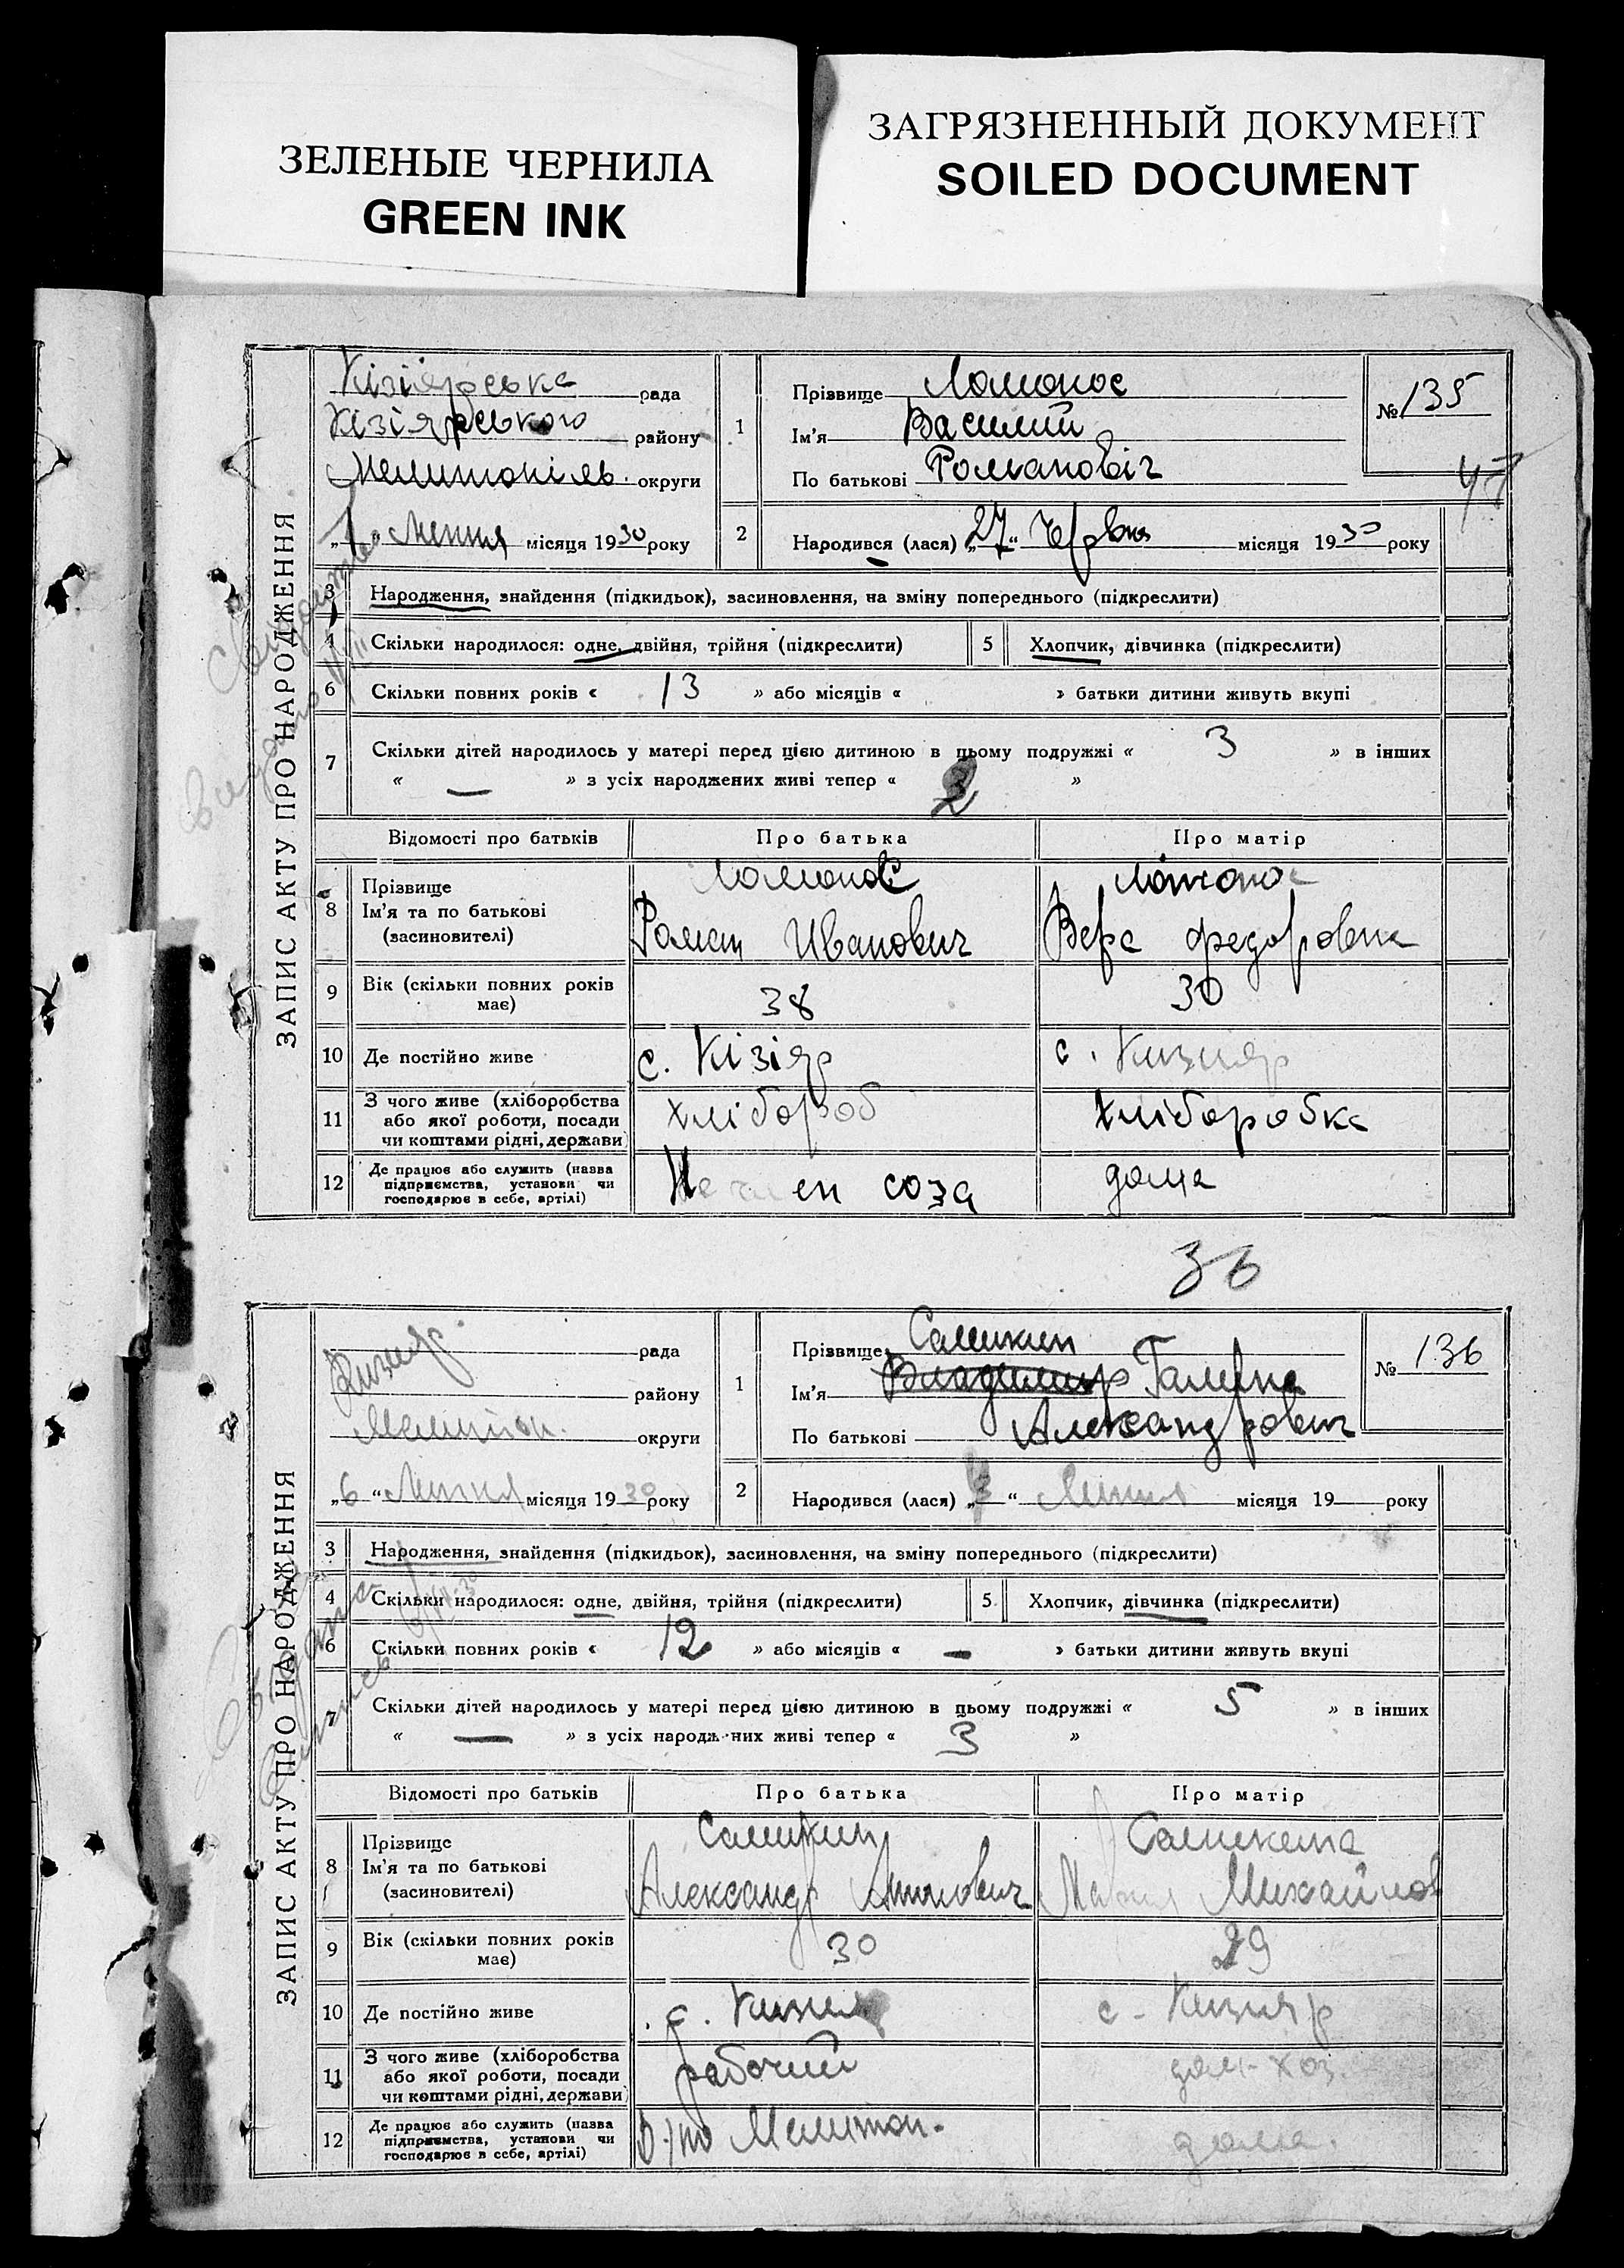 ЗЕЛЕНЫЕ ЧЕРНИЛА
GREEN INK
ЗАГРЯЗНЕННЫЙ ДОКУМЕНТ
SOILED DOCUMENT
ЗАПИС АКТУ ПРО НАРОДЖЕННЯ
Кізіярська рада
Кізіярського району
Мелитопіль. округи
„1“ Липня місяця 1930 року
1
Прізвище Ломонос
Ім'я Василий
По батькові Романовіч
№ 135
47
2
Народився (лася) „27“ Червня місяця 1930 року
3 Народження, знайдення (підкидьок), засиновлення, на зміну попереднього (підкреслити)
4 Скільки народилося: одне, двійня, трійня (підкреслити) 5 Хлопчик, дівчинка (підкреслити)
6 Скільки повних років « 13 » або місяців « » батьки дитини живуть вкупі
7 Скільки дітей народилось у матері перед цією дитиною в цьому подружжі « 3 » в інших
« — » з усіх народжених живі тепер « 2 »
Відомості про батьків Про батька Про матір
8 Прізвище Ломонос Ломонос
Ім'я та по батькові Роман Иванович Вера Федоровна
(засиновителі)
9 Вік (скільки повних років має) 38 30
10 Де постійно живе с. Кізіяр с. Кизияр
11 З чого живе (хліборобства або якої роботи, посади чи коштами рідні, держави) хлібороб хлібаробка
12 Де працює або служить (назва підприємства, установи чи господарює в себе, артілі) Не член соза дома
36
ЗАПИС АКТУ ПРО НАРОДЖЕННЯ
Кизияр. рада
району
Мелитоп. округи
„6“ Липня місяця 1930 року
1
Прізвище Самикин
Ім'я Галина
По батькові Александрович
№ 136
2
Народився (лася) „3“ Липня місяця 19 року
3 Народження, знайдення (підкидьок), засиновлення, на зміну попереднього (підкреслити)
4 Скільки народилося: одне, двійня, трійня (підкреслити) 5 Хлопчик, дівчинка (підкреслити)
6 Скільки повних років « 12 » або місяців « — » батьки дитини живуть вкупі
7 Скільки дітей народилось у матері перед цією дитиною в цьому подружжі « 5 » в інших
« — » з усіх народжених живі тепер « 3 »
Відомості про батьків Про батька Про матір
8 Прізвище Самикин
Ім'я та по батькові Александр Мария Михайлов
(засиновителі)
9 Вік (скільки повних років має) 30 29
10 Де постійно живе с. Кизияр с. Кизияр
11 З чого живе (хліборобства або якої роботи, посади чи коштами рідні, держави) рабочий дом-хоз.
12 Де працює або служить (назва підприємства, установи чи господарює в себе, артілі) Мелитоп. дома.